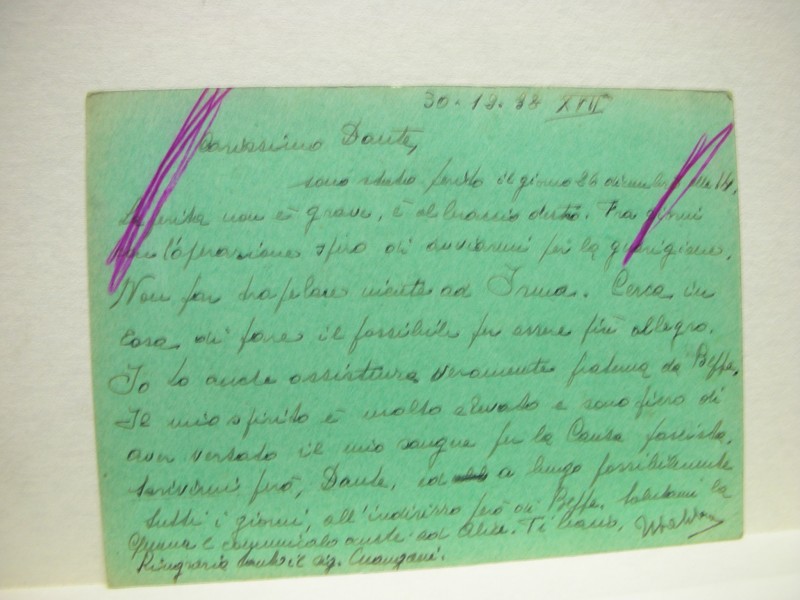 30-12-38 XVII
Carissimo Dante,
sono stato ferito il giorno 26 dicembre alle 14.
La ferita non è grave, è al braccio destro. Fra giorni
con l'operazione spero di avviarmi per la guarigione.
Non far trapelare niente ad Irma. Cerca in
casa di fare il possibile per essere più allegro.
Io ho anche assistenza veramente fraterna da Beppe.
Il mio spirito è molto elevato e sono fiero di
aver versato il mio sangue per la Causa fascista.
Scrivimi però, Dante, ed a lungo possibilmente
tutti i giorni, all'indirizzo però di Beppe. Salutami la
e comunicalo anche ad Alice. Ti bacio,
Ringrazia tanto il sig.